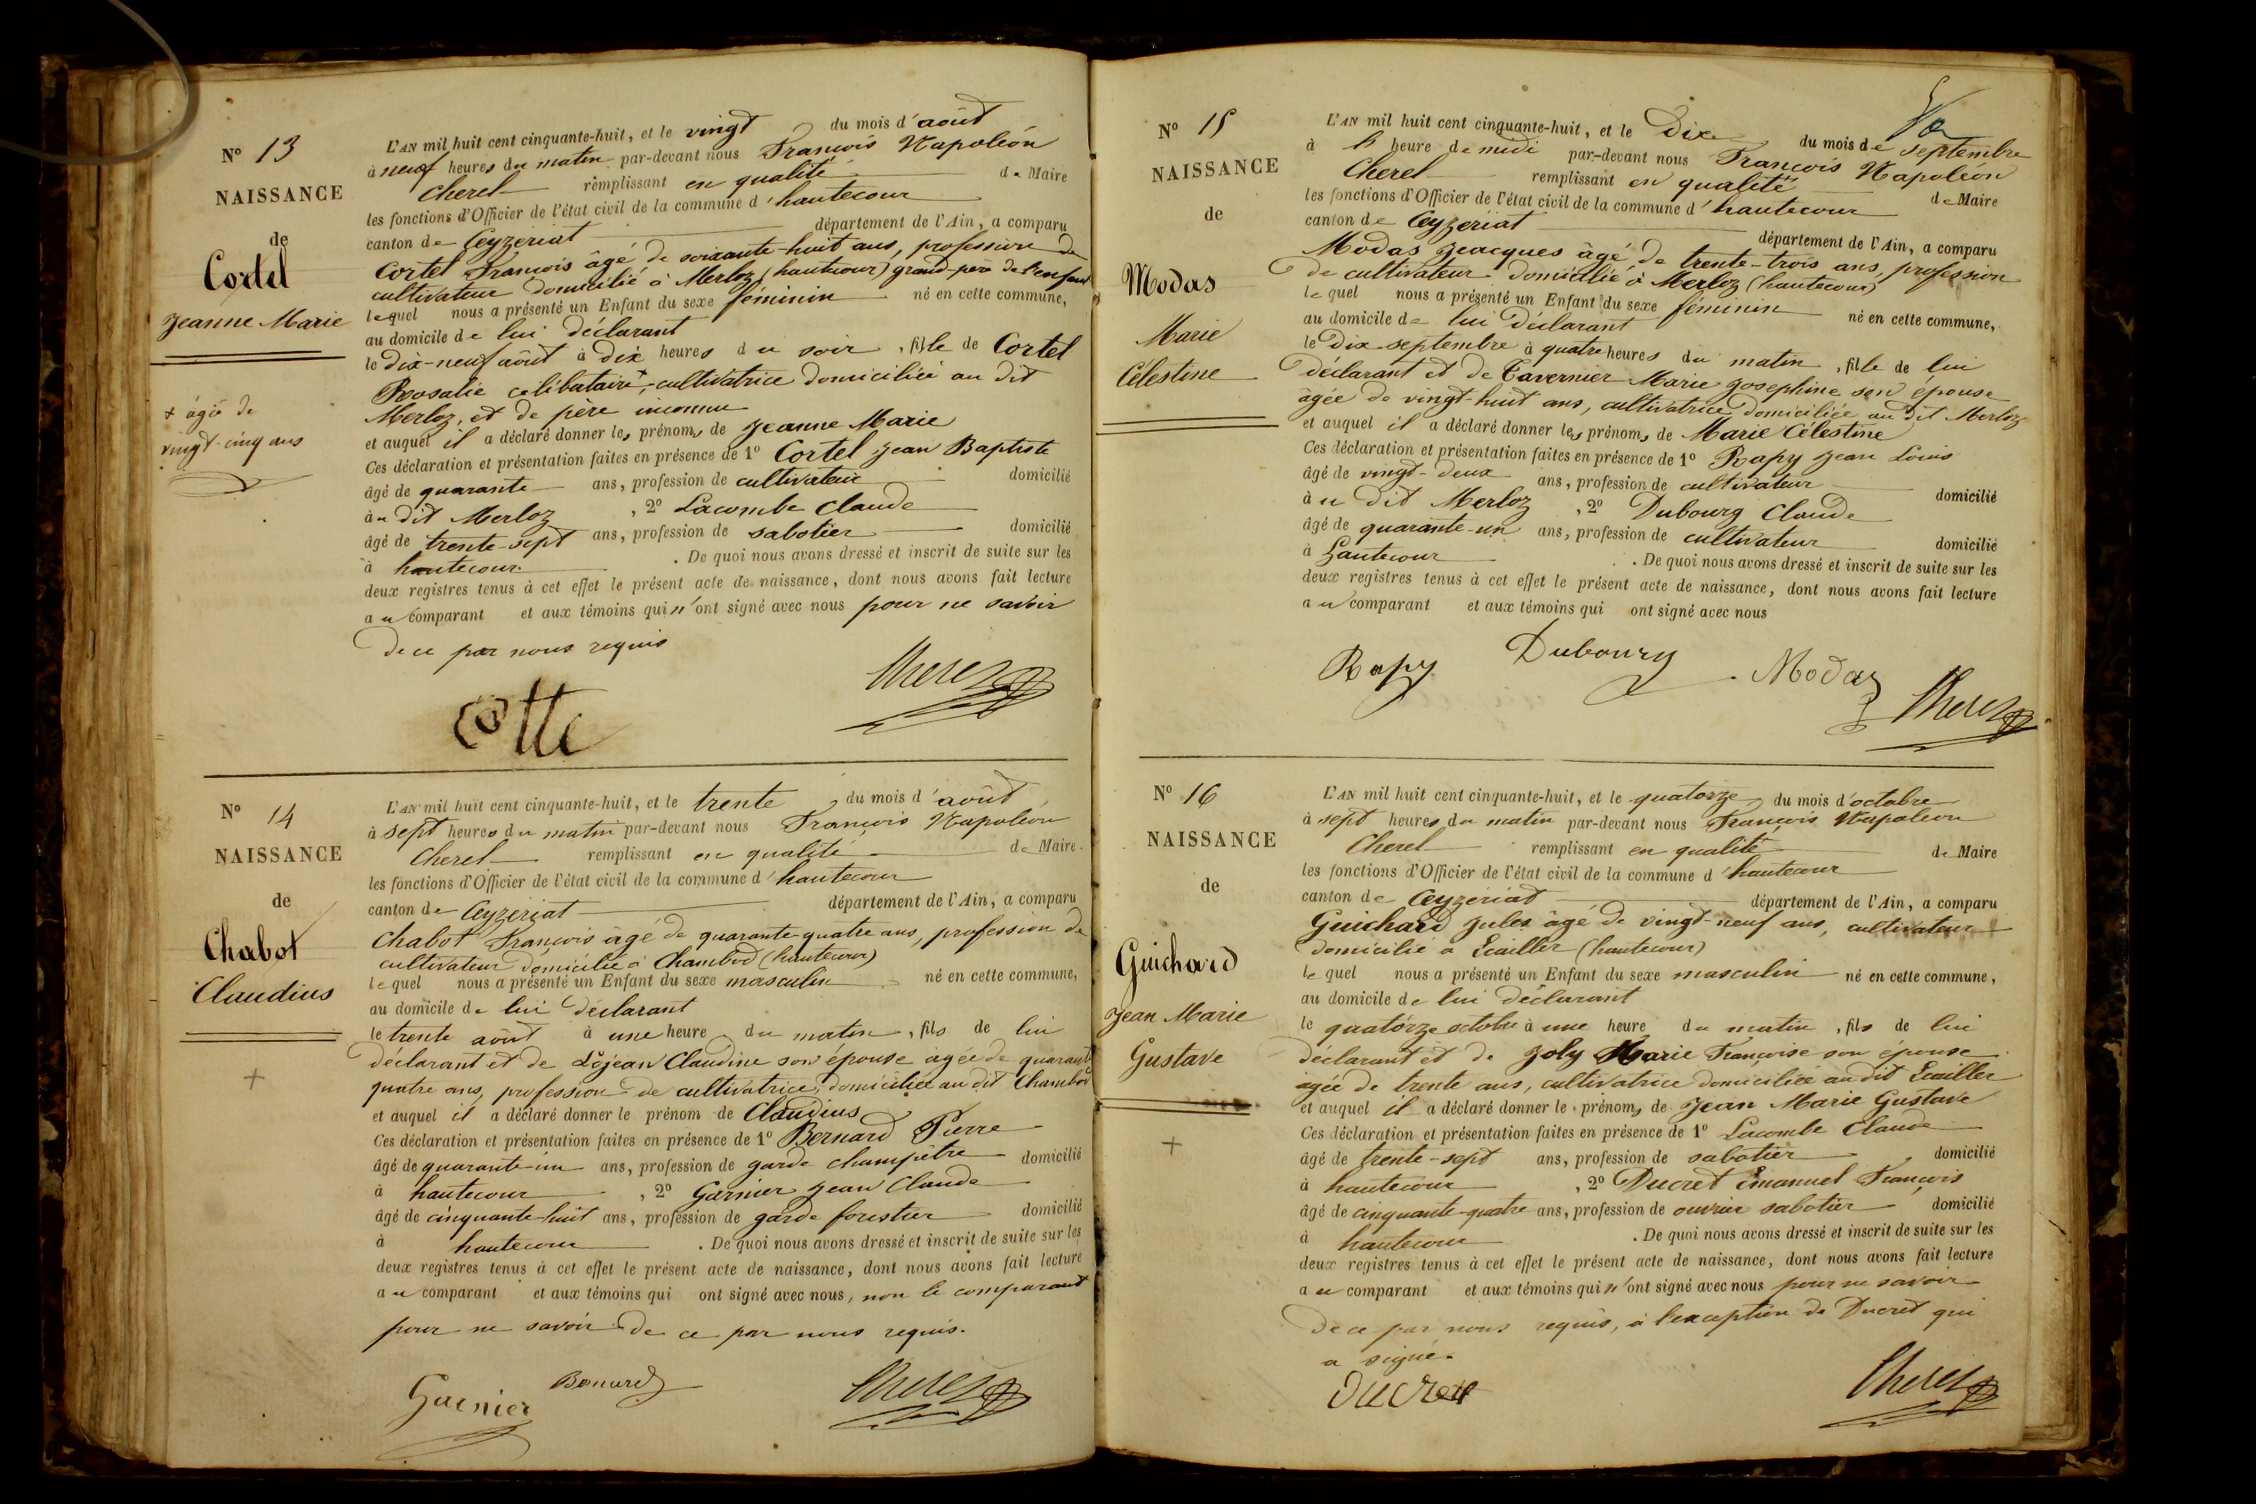 N° 13
NAISSANCE
de
Cortel
Jeanne Marie
+ âgée de
vingt-cinq ans
L'AN mil huit cent cinquante-huit, et le vingt du mois d'août
à neuf heures du matin par-devant nous François Napoléon
Cherel remplissant en qualité de Maire
les fonctions d'Officier de l'état civil de la commune d'hautecour
canton de Ceyzeriat département de l'Ain, a comparu
Cortel François âgé de soixante-huit ans, profession de
cultivateur domicilié à Merloz (hautecour) grand-père de l'enfant
lequel nous a présenté un Enfant du sexe féminin né en cette commune,
au domicile de lui déclarant
le dix-neuf août à dix heures du soir, fille de Cortel
Rosalie célibataire+, cultivatrice domiciliée au dit
Merloz, et de père inconnu
et auquel il a déclaré donner les prénoms de Jeanne Marie
Ces déclaration et présentation faites en présence de 1° Cortel Jean Baptiste
âgé de quarante ans, profession de cultivateur domicilié
au dit Merloz, 2° Lacombe Claude
âgé de trente-sept ans, profession de sabotier domicilié
à hautecour. De quoi nous avons dressé et inscrit de suite sur les
deux registres tenus à cet effet le présent acte de naissance, dont nous avons fait lecture
au comparant et aux témoins qui n'ont signé avec nous pour ne savoir
de ce par nous requis
Cherel
Cotte
N° 14
NAISSANCE
de
Chabot
Claudius
+
L'AN mil huit cent cinquante-huit, et le trente du mois d'août
à sept heures du matin par-devant nous François Napoléon
Cherel remplissant en qualité de Maire
les fonctions d'Officier de l'état civil de la commune d'hautecour
canton de Ceyzeriat département de l'Ain, a comparu
Chabot François âgé de quarante-quatre ans, profession de
cultivateur domicilié à Chambod (hautecour)
lequel nous a présenté un Enfant du sexe masculin né en cette commune,
au domicile de lui déclarant
le trente août à une heure du matin, fils de lui
déclarant et de Lojean Claudine son épouse âgée de quarante
quatre ans, profession de cultivatrice, domiciliée au dit Chambod
et auquel il a déclaré donner le prénom de Claudius
Ces déclaration et présentation faites en présence de 1° Bernard Pierre
âgé de quarante-un ans, profession de garde champêtre domicilié
à hautecour, 2° Garnier Jean Claude
âgé de cinquante-huit ans, profession de garde forestier domicilié
à hautecour. De quoi nous avons dressé et inscrit de suite sur les
deux registres tenus à cet effet le présent acte de naissance, dont nous avons fait lecture
au comparant et aux témoins qui ont signé avec nous, non le comparant
pour ne savoir de ce par nous requis.
Garnier Bernard Cherel
N° 15
NAISSANCE
de
Modas
Marie
Célestine
L'AN mil huit cent cinquante-huit, et le Dix du mois de septembre
à heure de midi par-devant nous François Napoléon
Cherel remplissant en qualité de Maire
les fonctions d'Officier de l'état civil de la commune d'hautecour
canton de Ceyzeriat département de l'Ain, a comparu
Modas Jeacques âgé de trente-trois ans, profession
de cultivateur domicilié à Merloz (hautecour)
lequel nous a présenté un Enfant du sexe féminin né en cette commune,
au domicile de lui déclarant
le Dix septembre à quatre heures du matin, fille de lui
déclarant et de Tavernier Marie Josephine son épouse
âgée de vingt-huit ans, cultivatrice domiciliée au dit Merloz
et auquel il a déclaré donner les prénoms de Marie Célestine
Ces déclaration et présentation faites en présence de 1° Rapy Jean Louis
âgé de vingt-deux ans, profession de cultivateur domicilié
au dit Merloz, 2° Dubourg Claude
âgé de quarante-un ans, profession de cultivateur domicilié
à hautecour. De quoi nous avons dressé et inscrit de suite sur les
deux registres tenus à cet effet le présent acte de naissance, dont nous avons fait lecture
au comparant et aux témoins qui ont signé avec nous
Rapy Dubourg Modas Cherel
N° 16
NAISSANCE
de
Guichard
Jean Marie
Gustave
+
L'AN mil huit cent cinquante-huit, et le quatorze du mois d'octobre
à sept heures du matin par-devant nous François Napoléon
Cherel remplissant en qualité de Maire
les fonctions d'Officier de l'état civil de la commune d'hautecour
canton de Ceyzeriat département de l'Ain, a comparu
Guichard Jules âgé de vingt-neuf ans, cultivateur
domicilié à Ecailler (hautecour)
lequel nous a présenté un Enfant du sexe masculin né en cette commune,
au domicile de lui déclarant
le quatorze octobre à une heure du matin, fils de lui
déclarant et de Joly Marie Françoise son épouse
âgée de trente ans, cultivatrice domiciliée au dit Ecailler
et auquel il a déclaré donner le prénoms de Jean Marie Gustave
Ces déclaration et présentation faites en présence de 1° Lacombe Claude
âgé de trente-sept ans, profession de sabotier domicilié
à hautecour, 2° Ducret Emanuel François
âgé de cinquante-quatre ans, profession de ouvrier sabotier domicilié
à hautecour. De quoi nous avons dressé et inscrit de suite sur les
deux registres tenus à cet effet le présent acte de naissance, dont nous avons fait lecture
au comparant et aux témoins qui n'ont signé avec nous pour ne savoir
de ce par nous requis, à l'exception de Ducret qui
a signé.
Ducret Cherel